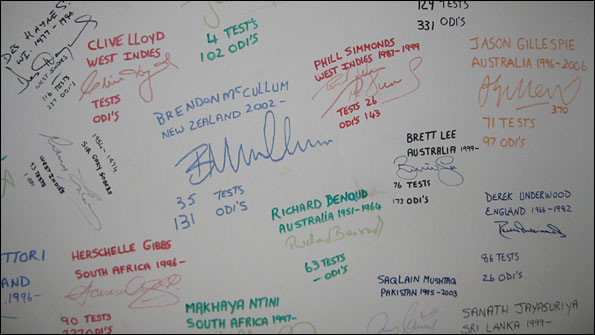 DES HAYNES
W.I. 1977-1994
WEST INDIES
116 TESTS
237 ODI'S
CLIVE LLOYD
WEST INDIES
TESTS
ODI'S
4 TEST'S
102 ODI'S
129 TESTS
331 ODI'S
PHILL SIMMONDS
WEST INDIES 1987-1999
TESTS 26
ODI'S 143
JASON GILLESPIE
AUSTRALIA 1996-2006
370
71 TESTS
97 ODI'S
BRENDON McCULLUM
NEW ZEALAND 2002-
BMcCullum
35 TESTS
131 ODI'S
1954-1974
SIR GARY SOBERS
WEST INDIES
93 TESTS
1 ODI
BRETT LEE
AUSTRALIA 1999-
76 TESTS
ODI'S
RICHARD BENOUD
AUSTRALIA 1951-1964
Richard Benaud
63 TESTS
- ODI'S
DEREK UNDERWOOD
ENGLAND 1966-1982
86 TESTS
26 ODI'S
TTORI
AND
1996-
HERSCHELLE GIBBS
SOUTH AFRICA 1996-
90 TESTS
ODI'S
MAKHAYA NTINI
SOUTH AFRICA 1997-
SAQLAIN MUSHTAQ
PAKISTAN 1995-2003
SANATH JAYASURIYA
SRI LANKA